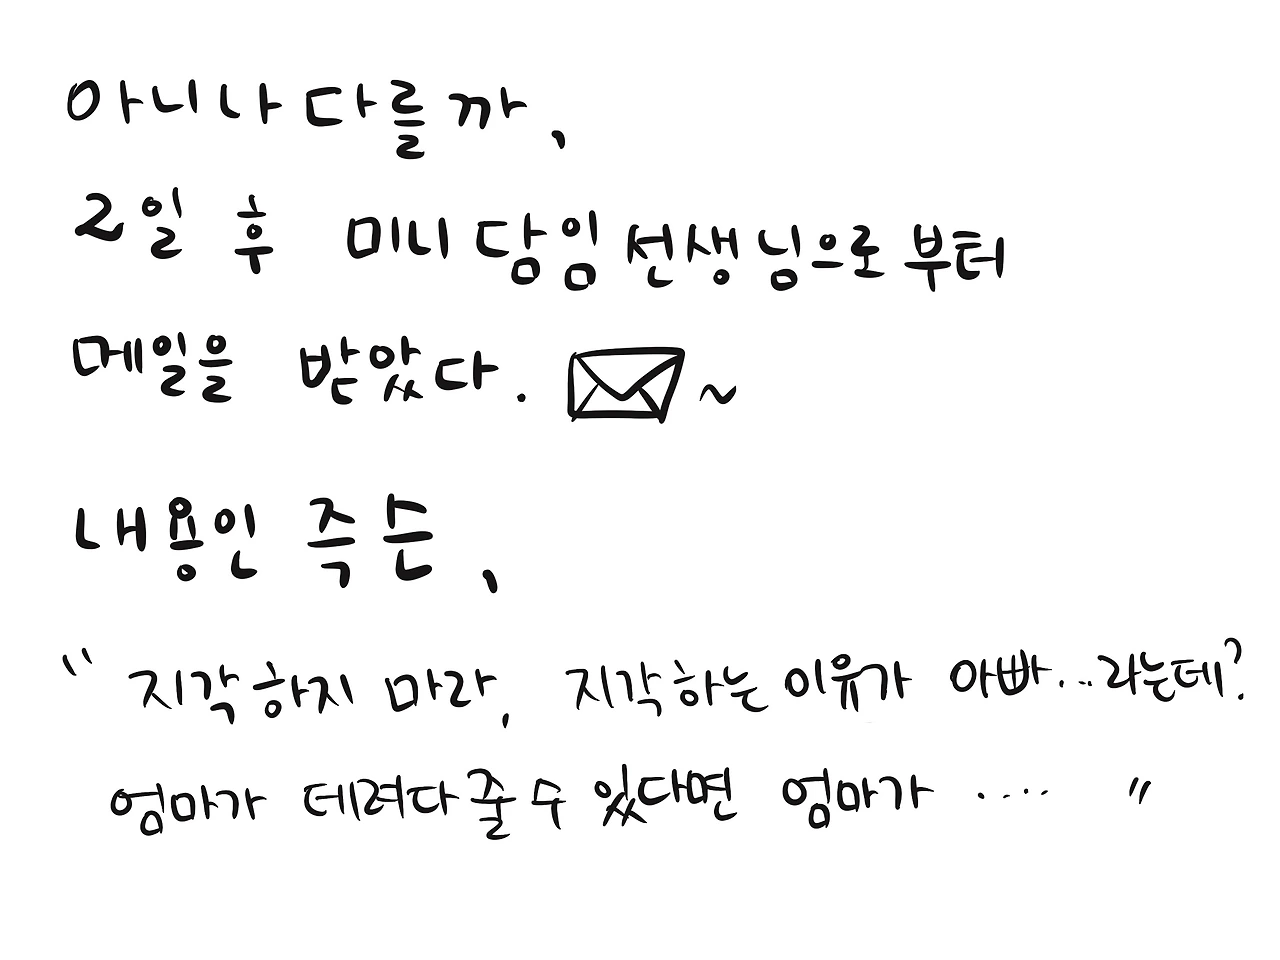 아니나 다를까,
2일 후 미니 담임 선생님으로부터
메일을 받았다. ~
내용인 즉슨,
" 지각하지 마라, 지각하는 이유가 아빠...라는데?
엄마가 데려다 줄 수 있다면 엄마가 .... "